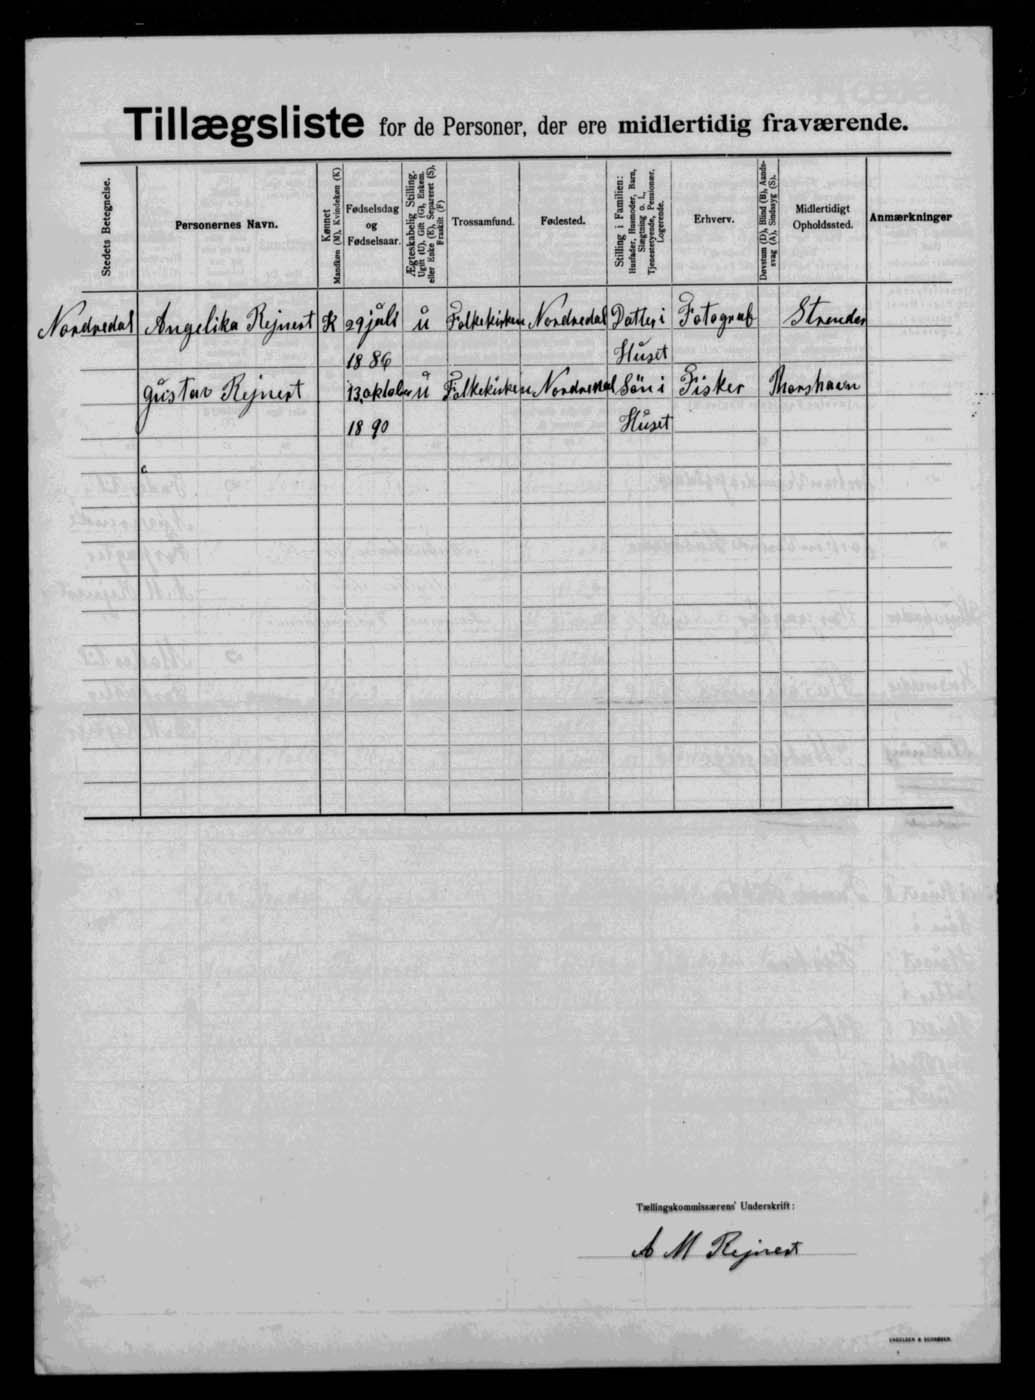 Tillægsliste for de Personer, der ere midlertidig fraværende.
Stedets Betegnelse.
Personernes Navn.
Kønnet
Mandkøn (M), Kvindekøn (K)
Fødselsdag
og
Fødselsaar.
Ægteskabelig Stilling.
Ugift (U), Gift (G), Enkem.
eller Enke (E), Separeret (S),
Fraskilt (F)
Trossamfund.
Fødested.
Stilling i Familien:
Husfader, Husmoder, Barn,
Slægtning o. l.,
Tjenestetyende, Pensionær,
Logerende.
Erhverv.
Døvstum (D), Blind (B), Aands-
svag (A), Sindssyg (S).
Midlertidigt
Opholdssted.
Anmærkninger
Nordredal Angelika Rejnert K 29 juli u Folkekirken Nordredal Datter i Fotograf Strender
1886 Huset
Gustav Rejnert 13 oktober u Folkekirken Nordredal Søn i Fisker Thorshavn
1890 Huset
Tællingskommissærens' Underskrift:
A M Rejnert